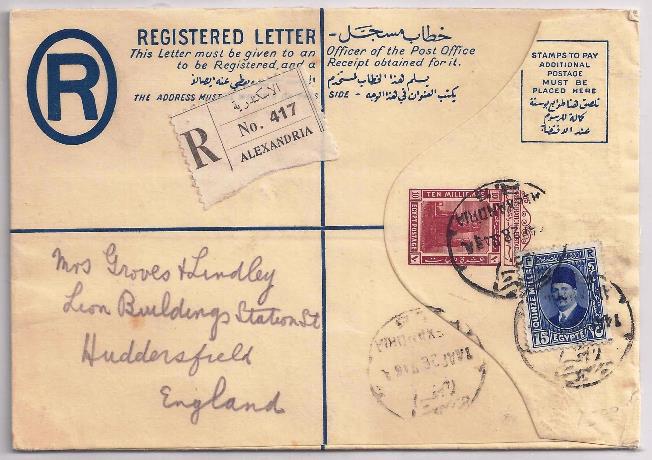 R
REGISTERED LETTER - خطاب مسجل -
This Letter must be given to an Officer of the Post Office
to be Registered, and a Receipt obtained for it.
يسلم هذا الخطاب لمستخدم
THE ADDRESS MUST SIDE - يكتب العنوان في هذا الوجه
STAMPS TO PAY
ADDITIONAL
POSTAGE
MUST BE
PLACED HERE
تلصق هنا طوابع بوستة
كالة للرسوم
عند الاقتضا
الاسكندرية
R No. 417
ALEXANDRIA
10 TEN MILLIEMES 10
EGYPT POSTAGE
ALEXANDRIA
QUINZE MILLS
15 EGYPTE
14
ALEXANDRIA
Mrs Groves & Lindley
Lion Buildings Station St
Huddersfield
England